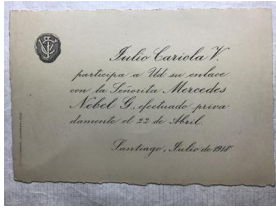 Julio Cariola V.
participa a Ud su enlace
con la Señorita Mercedes
Nebel G., efectuado priva
damente el 22 de Abril.
Santiago, Julio de 1918